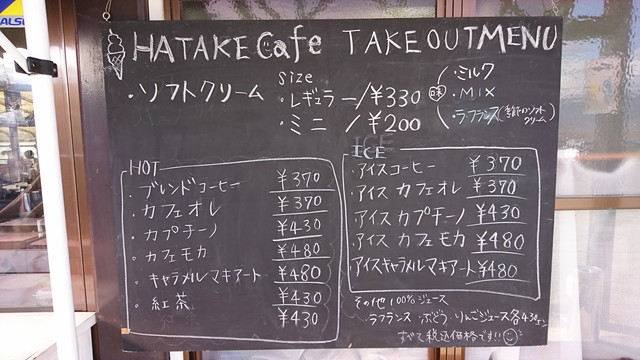 HATAKE Cafe TAKEOUTMENU
・ソフトクリーム
size
・レギュラー/¥330
・ミニ/¥200
味
・ミルク
・MIX
・ラ・フランス(季節のソフトクリーム)
HOT
・ブレンドコーヒー ¥370
・カフェオレ ¥370
・カプチーノ ¥430
・カフェモカ ¥480
・キャラメルマキアート ¥480
・紅茶 ¥430
¥430
ICE
・アイスコーヒー ¥370
・アイスカフェオレ ¥370
・アイスカプチーノ ¥430
・アイスカフェモカ ¥480
アイスキャラメルマキアート ¥480
その他100%ジュース
ラフランス ぶどう りんごジュース各430エン
すべて税込価格です!!